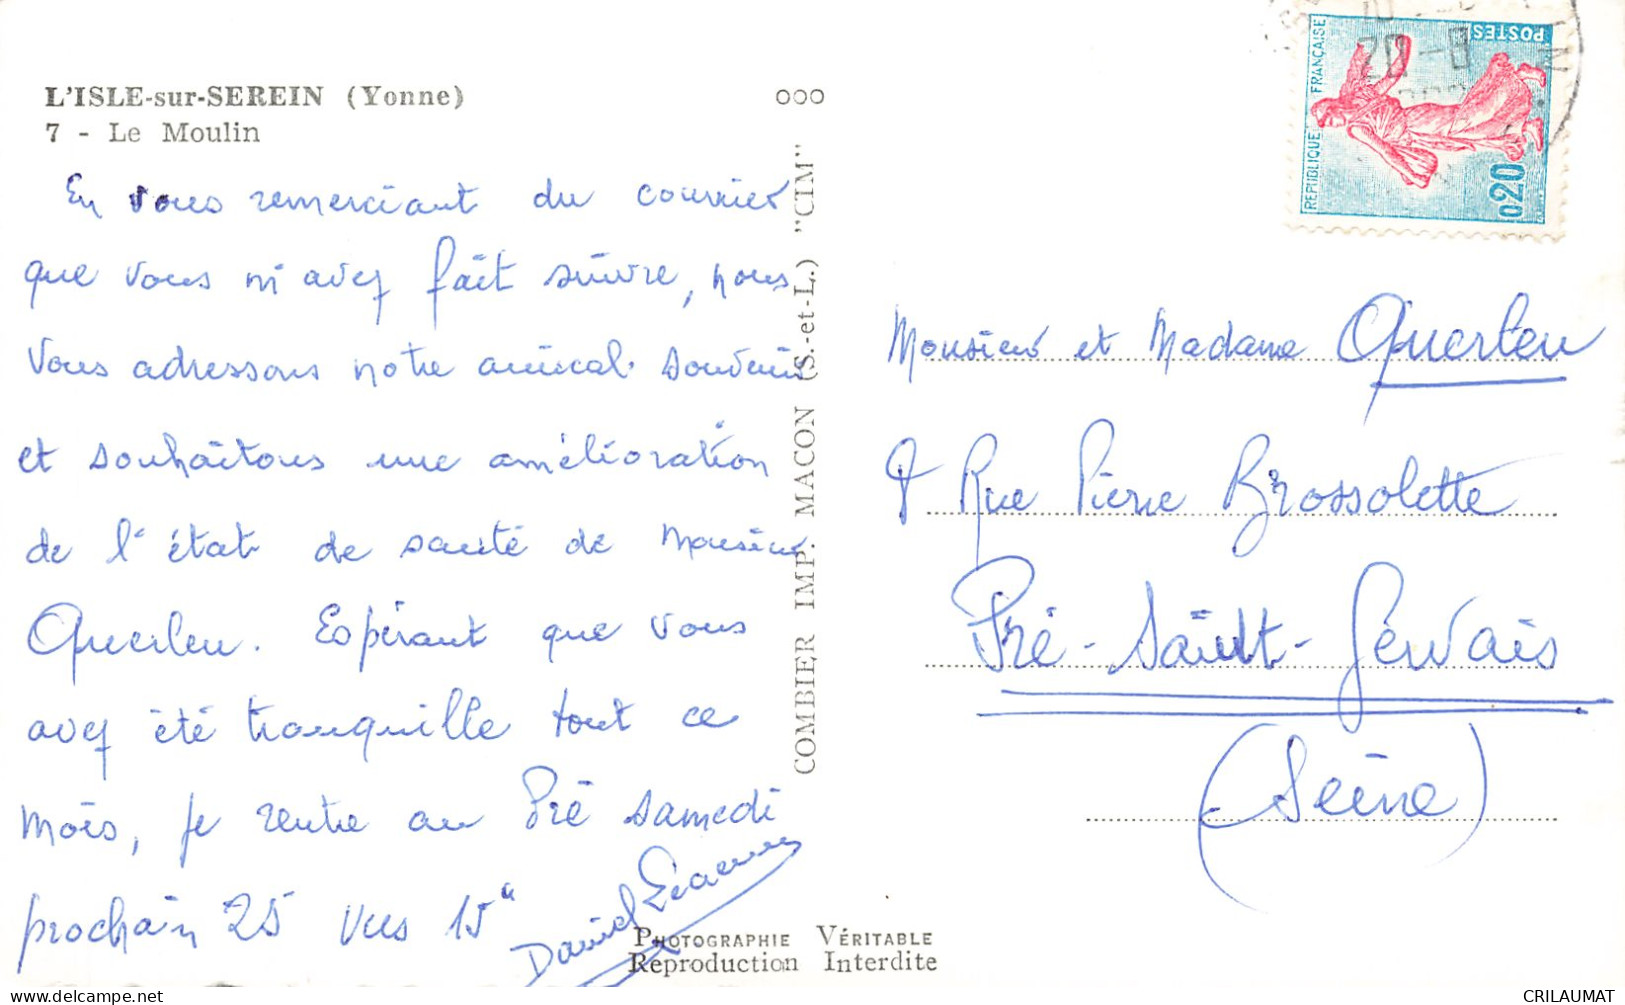 L'ISLE-sur-SEREIN (Yonne)
7 - Le Moulin
En vous remerciant du courrier
que vous m'avez fait suivre, nous
vous adressons notre amical souvenir
et souhaitons une amélioration
de l'état de santé de Monsieur
Querleu. Espérant que vous
avez été tranquille tout ce
mois, je rentre au Pré samedi
prochain 25 vers 15h
Daniel
COMBIER IMP. MACON (S.-et-L.) "CIM"
PHOTOGRAPHIE VÉRITABLE
Reproduction Interdite
REPUBLIQUE FRANÇAISE
POSTES
0,20
20 - 8
Monsieur et Madame Querleu
8 Rue Pierre Brossolette
Pré-Saint-Gervais
(Seine)
CRILAUMAT